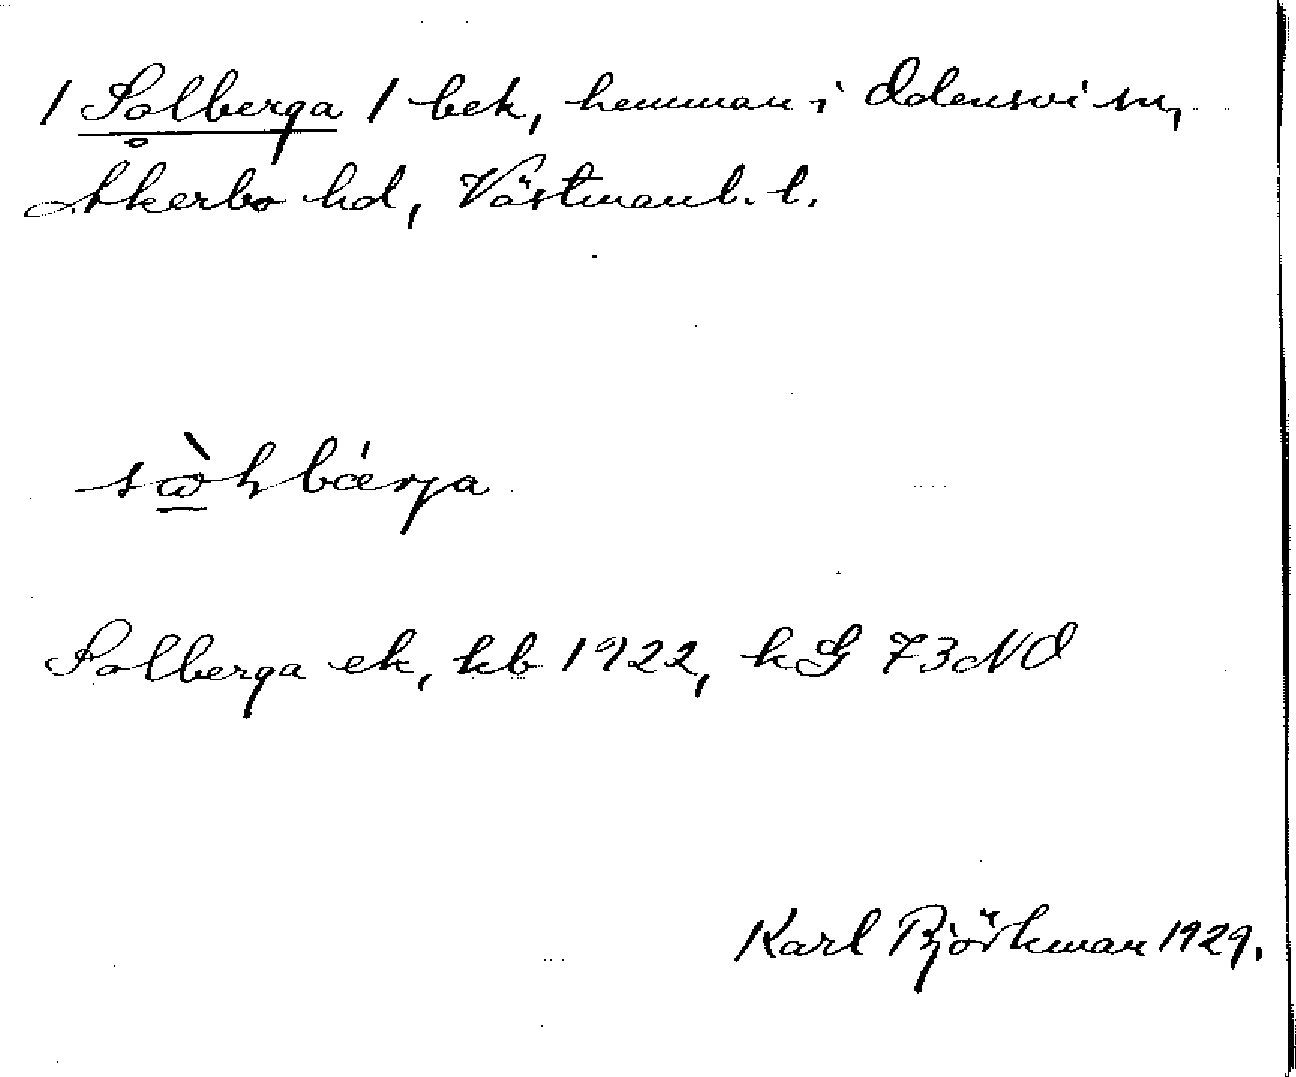 / Solberga / bek, hemman i Odensvi sn,
Åkerbo hd, Västmanl. l.
Solberga ek, kb 1922, kG 73 NO
Karl Björkman 1929.